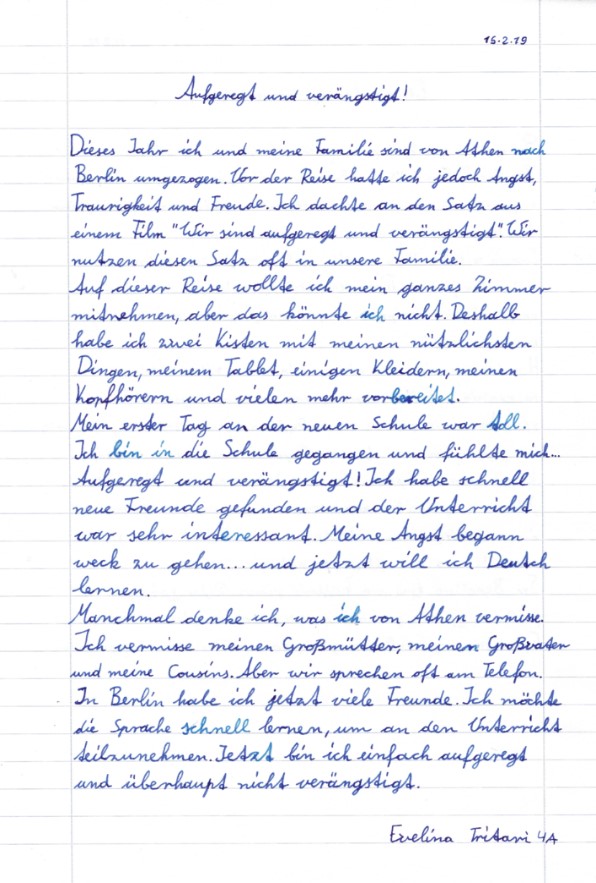 15.2.19
Aufgeregt und verängstigt!
Dieses Jahr ich und meine Familie sind von Athen nach
Berlin umgezogen. Vor der Reise hatte ich jedoch Angst,
Traurigkeit und Freude. Ich dachte an den Satz aus
einem Film "Wir sind aufgeregt und verängstigt". Wir
nutzen diesen Satz oft in unsere Familie.
Auf dieser Reise wollte ich mein ganzes Zimmer
mitnehmen, aber das könnte ich nicht. Deshalb
habe ich zwei Kisten mit meinen nützlichsten
Dingen, meinem Tablet, einigen Kleidern, meinen
Kopfhörern und vielen mehr vorbereitet.
Mein erster Tag an der neuen Schule war toll.
Ich bin in die Schule gegangen und fühlte mich...
Aufgeregt und verängstigt! Ich habe schnell
neue Freunde gefunden und der Unterricht
war sehr interessant. Meine Angst begann
weck zu gehen... und jetzt will ich Deutsch
lernen.
Manchmal denke ich, was ich von Athen vermisse.
Ich vermisse meinen Großmütter, meinen Großvater
und meine Cousins. Aber wir sprechen oft am Telefon.
In Berlin habe ich jetzt viele Freunde. Ich möchte
die Sprache schnell lernen, um an den Unterricht
teilzunehmen. Jetzt bin ich einfach aufgeregt
und überhaupt nicht verängstigt.
Evelina Tritari 4A